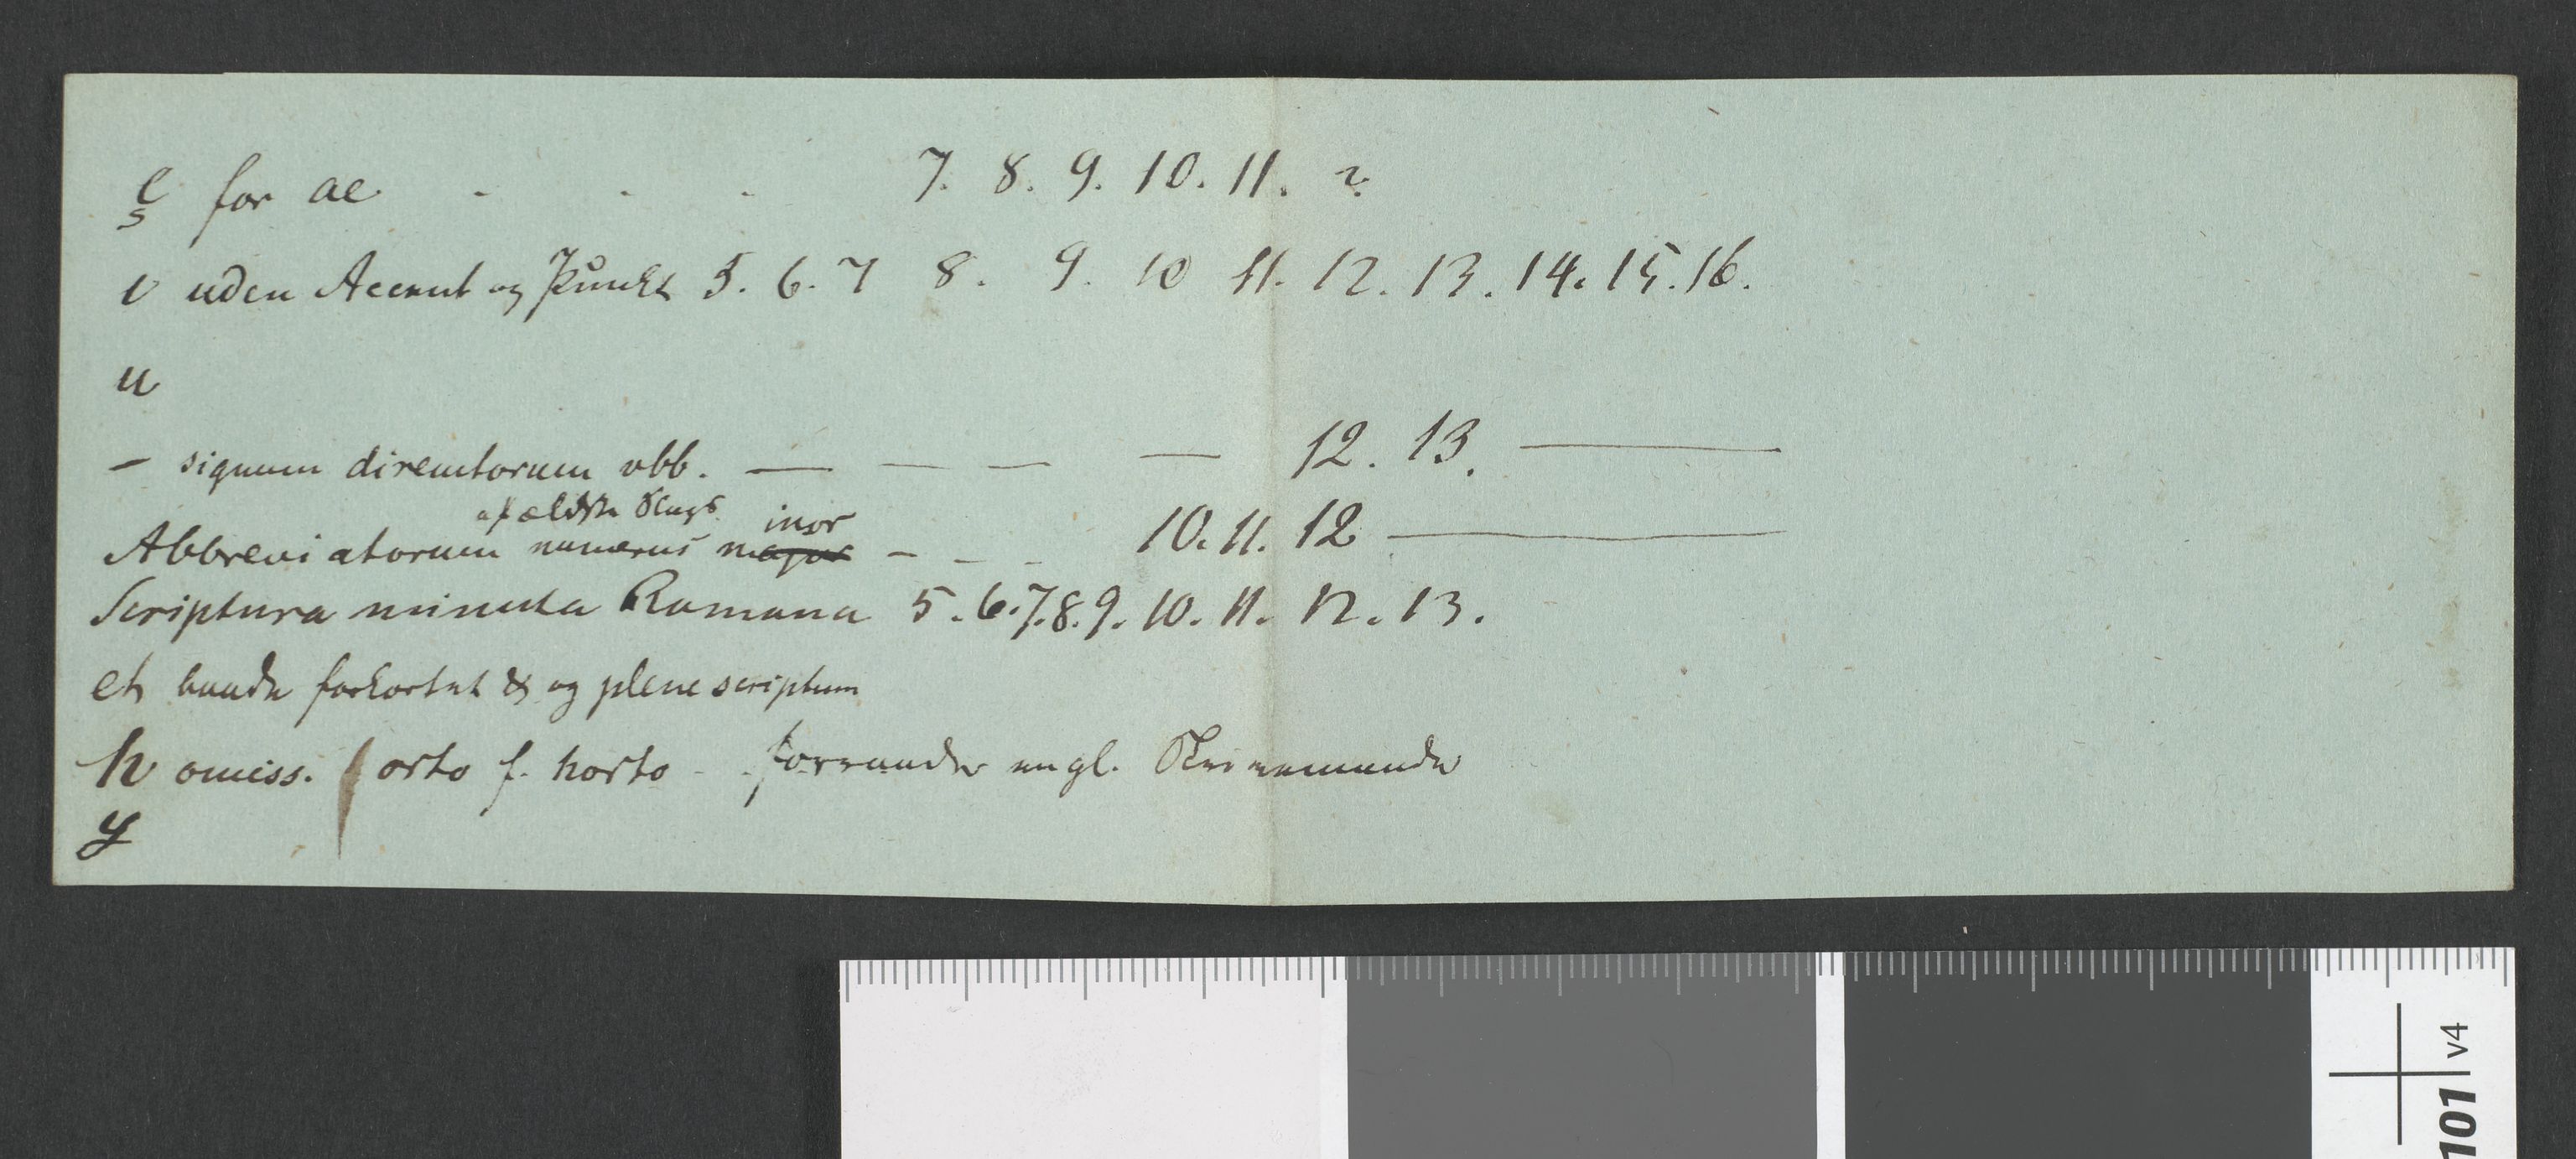 ę for ae - - - 7. 8. 9. 10. 11. ?
ı uden Accent og Punkt 5. 6. 7 8. 9. 10 11. 12. 13. 14. 15. 16.
u
— signum diremtorum vbb. — — — — 12. 13. —
af ældste Slags inor
Abbreviatorum numerus major - - - 10. 11. 12 —
Scriptura minuta Romana 5. 6. 7. 8. 9. 10. 11. 12. 13.
et baade forkortet & og plene scriptum
h omiss. orto f. horto - - forraader engl. Skrivemaade
y
101 V4